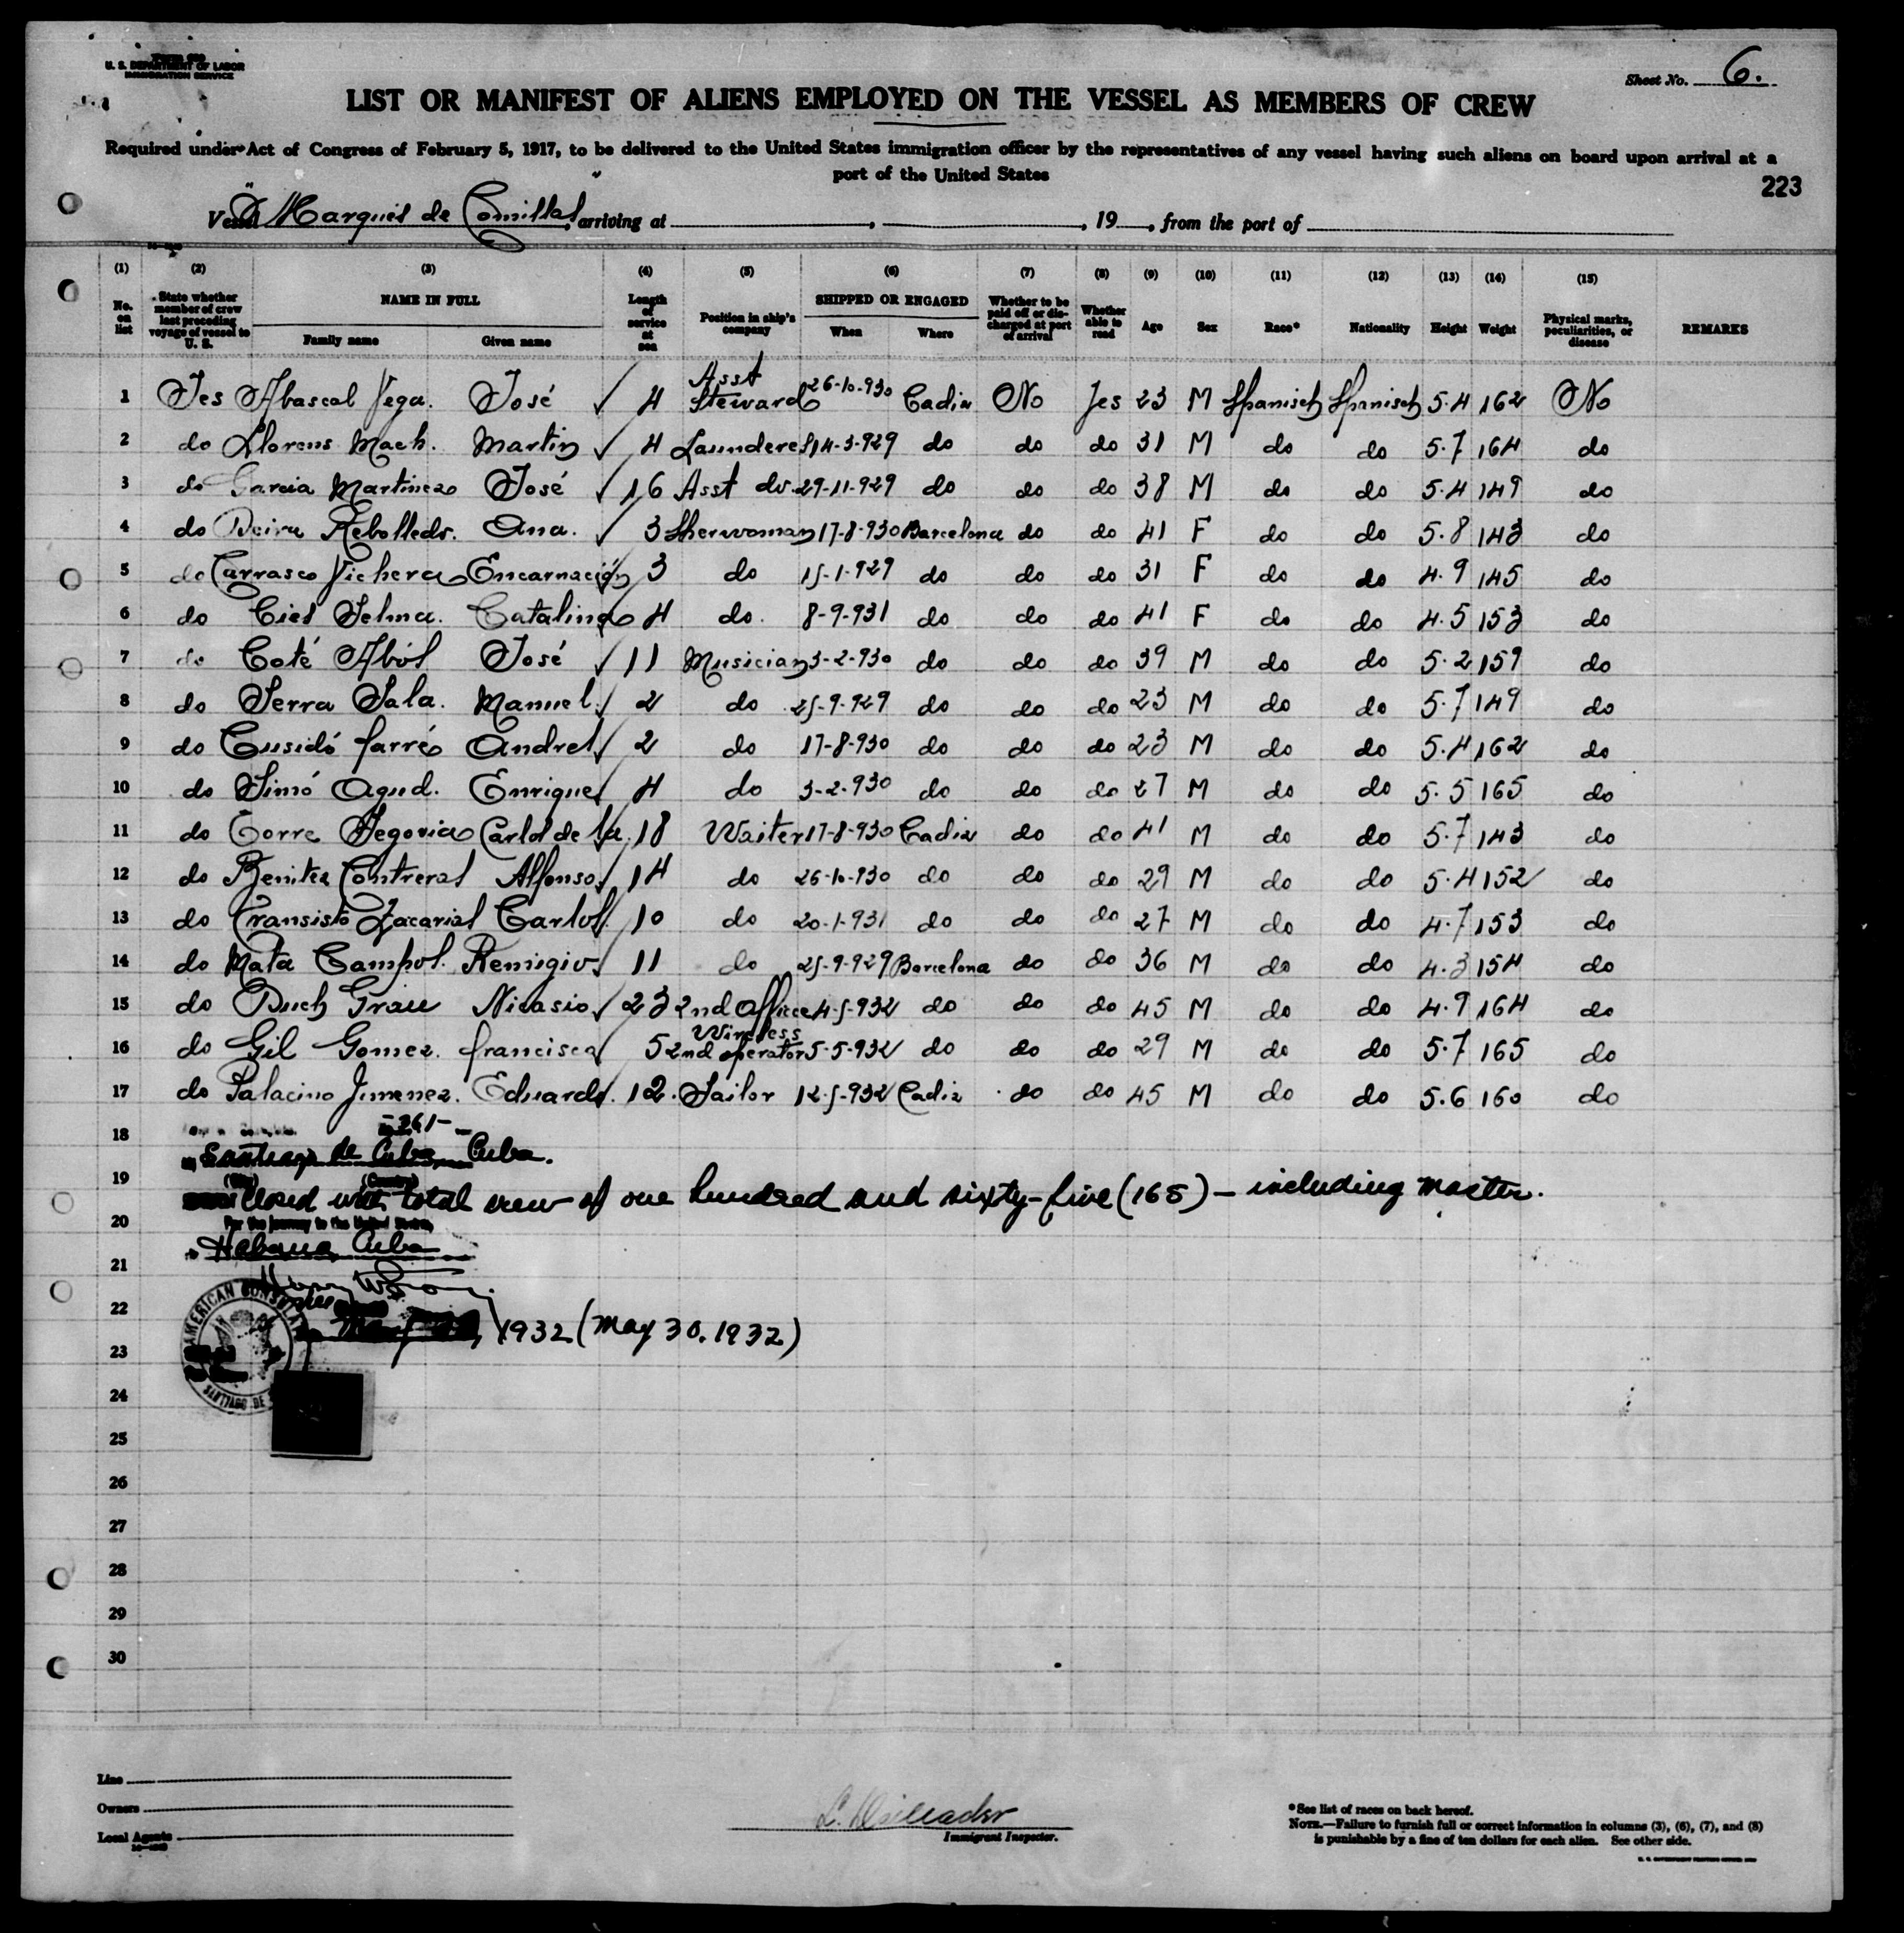 U. S. DEPARTMENT OF LABOR
IMMIGRATION SERVICE
Sheet No. 6.
LIST OR MANIFEST OF ALIENS EMPLOYED ON THE VESSEL AS MEMBERS OF CREW
Required under Act of Congress of February 5, 1917, to be delivered to the United States immigration officer by the representatives of any vessel having such aliens on board upon arrival at a
port of the United States
223
Vessel "Marqués de Comillas", arriving at , , 19 , from the port of
(1) (2) (3) (4) (5) (6) (7) (8) (9) (10) (11) (12) (13) (14) (15)
No. on list State whether member of crew last preceding voyage of vessel to U. S. NAME IN FULL Family name Given name Length of service at sea Position in ship's company SHIPPED OR ENGAGED When Where Whether to be paid off or discharged at port of arrival Whether able to read Age Sex Race* Nationality Height Weight Physical marks, peculiarities, or disease REMARKS
1 Yes Abascal Vega. José ✓ 4 Asst Steward 26-10-930 Cadiz No Yes 23 M Spanisch Spanisch 5.4 162 No
2 do Llorens Mach. Martin ✓ 4 Launderes 14-3-929 do do do 31 M do do 5.7 164 do
3 do Garcia Martinez José ✓ 16 Asst do 29-11-929 do do do 38 M do do 5.4 149 do
4 do Rebolledo. Ana. ✓ 3 Sherwoman 17-8-930 Barcelona do do 41 F do do 5.8 143 do
5 do Carrasco Vichera Encarnación 3 do 15-1-929 do do do 31 F do do 4.9 145 do
6 do Cies Selma. Catalina 4 do. 8-9-931 do do do 41 F do do 4.5 153 do
7 do Coté Aból José ✓ 11 Musician 3-2-930 do do do 39 M do do 5.2 159 do
8 do Serra Sala. Manuel. ✓ 2 do 25-9-929 do do do 23 M do do 5.7 149 do
9 do Cusidó farré Andres ✓ 2 do 17-8-930 do do do 23 M do do 5.4 162 do
10 do Simó Agud. Enrique ✓ 4 do 3-2-930 do do do 27 M do do 5.5 165 do
11 do Torre Segovia Carlos de la. 18 Waiter 17-8-930 Cadiz do do 41 M do do 5.7 143 do
12 do Benitez Contreras Alfonso ✓ 14 do 26-10-930 do do do 29 M do do 5.4 152 do
13 do Transisto Zacarias Carlos ✓ 10 do 20-1-931 do do do 27 M do do 4.7 153 do
14 do Mata Campol. Remigio ✓ 11 do 25-9-929 Barcelona do do 36 M do do 4.3 154 do
15 do Duch Grau Nicasio ✓ 23 2nd Officer 4-5-932 do do do 45 M do do 4.9 164 do
16 do Gil Gomez. francisco ✓ 5 2nd Wireless operator 5-5-932 do do do 29 M do do 5.7 165 do
17 do Palacino Jimenez. Eduardo. 12. Sailor 12-5-932 Cadiz do do 45 M do do 5.6 160 do
18 -261-
Santiago de Cuba, Cuba.
(City) (Country)
19 closed with total crew of one hundred and sixty-five (165) - including master.
20 For the journey to the United States,
Habana, Cuba
21
22 AMERICAN CONSULATE
1932 (May 30, 1932)
23
24 SANTIAGO DE
25
26
27
28
29
30
Line
Owners
Local Agents
Immigrant Inspector.
*See list of races on back hereof.
NOTE.—Failure to furnish full or correct information in columns (3), (6), (7), and (8)
is punishable by a fine of ten dollars for each alien. See other side.